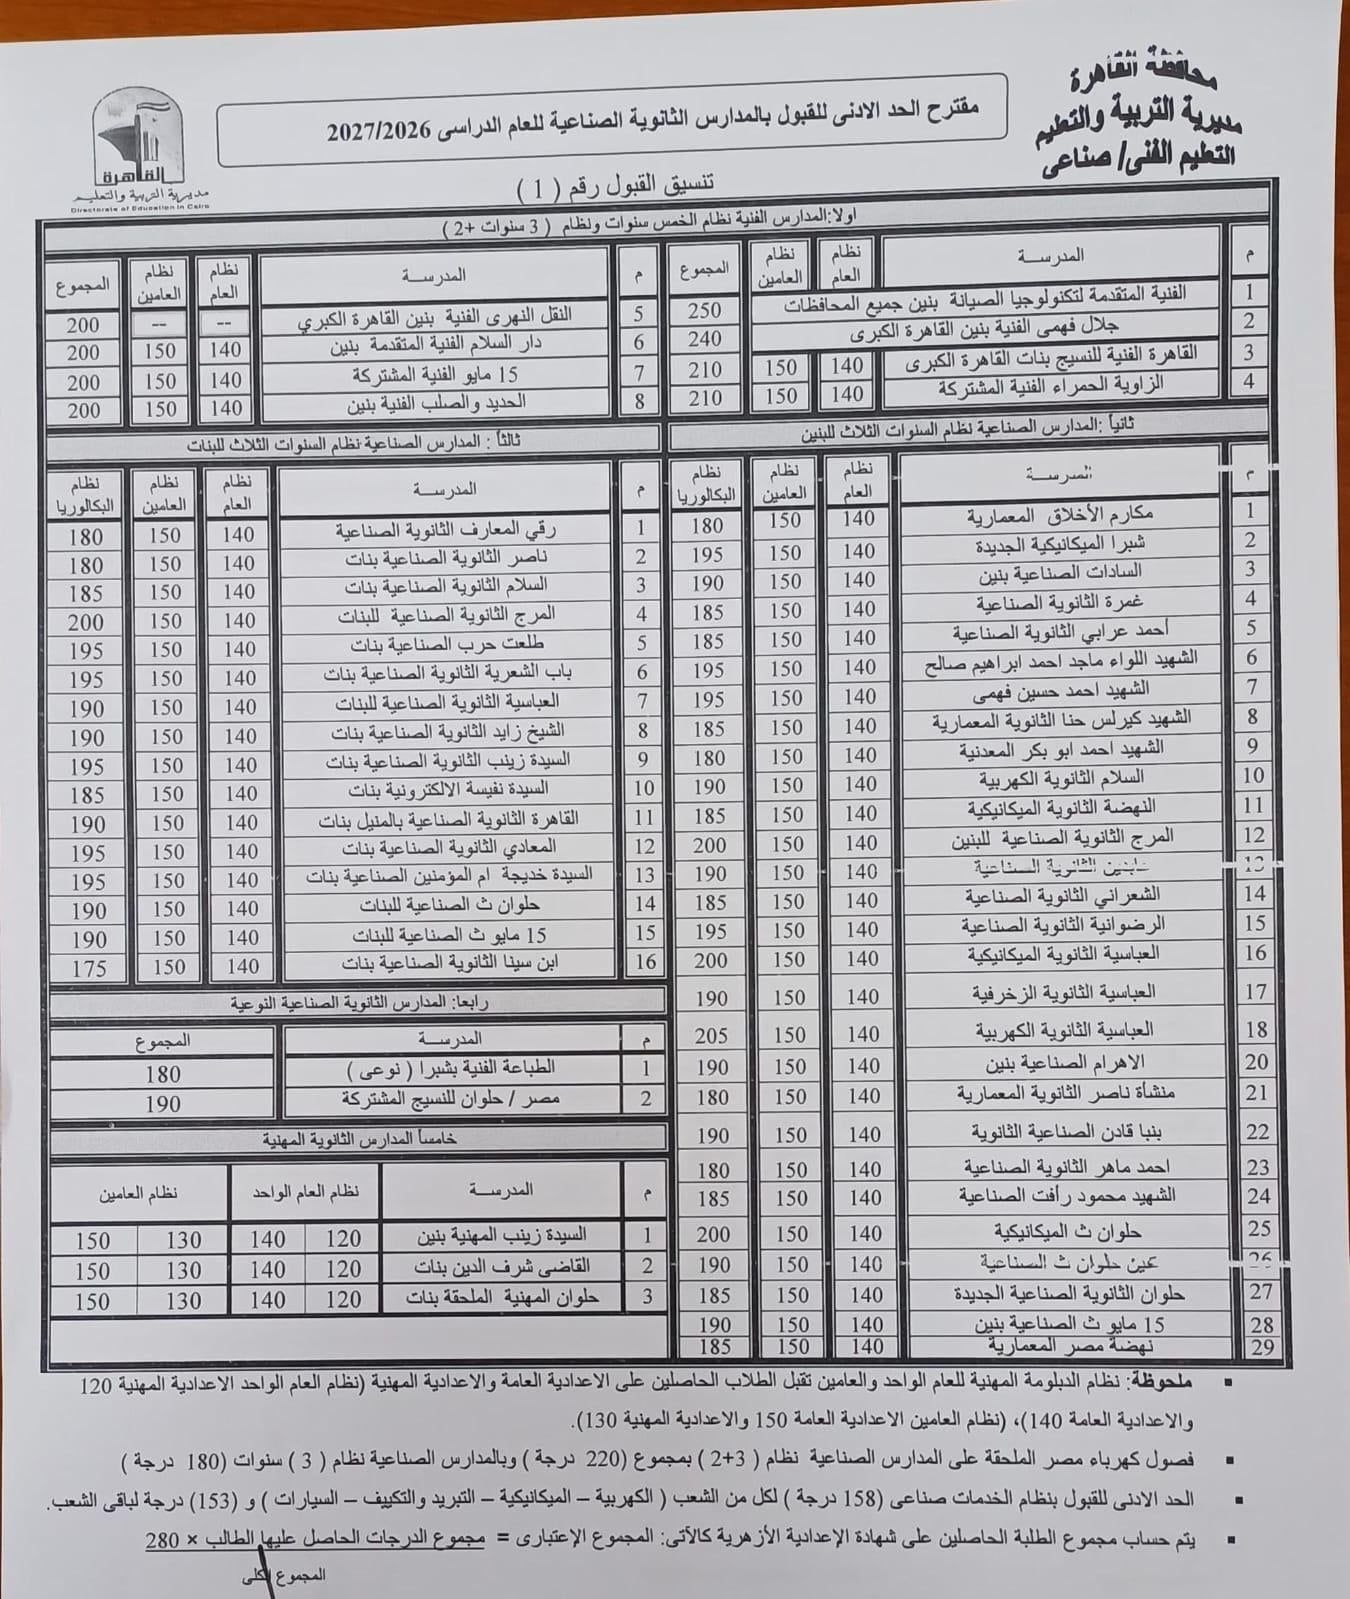 محافظة القاهرة
مديرية التربية والتعليم
التعليم الفنى/ صناعى
القاهرة
مديرية التربية والتعليم
Directorate of Education in Cairo
مقترح الحد الادنى للقبول بالمدارس الثانوية الصناعية للعام الدراسى 2027/2026
تنسيق القبول رقم ( 1 )
اولا:المدارس الفنية نظام الخمس سنوات ونظام ( 3 سنوات +2 )
م المدرســـة نظام العام نظام العامين المجموع
1 الفنية المتقدمة لتكنولوجيا الصيانة بنين جميع المحافظات 250
2 جلال فهمى الفنية بنين القاهرة الكبرى 240
3 القاهرة الفنية للنسيج بنات القاهرة الكبرى 140 150 210
4 الزاوية الحمراء الفنية المشتركة 140 150 210
م المدرســـة نظام العام نظام العامين المجموع
5 النقل النهرى الفنية بنين القاهرة الكبري -- -- 200
6 دار السلام الفنية المتقدمة بنين 140 150 200
7 15 مايو الفنية المشتركة 140 150 200
8 الحديد والصلب الفنية بنين 140 150 200
ثانياً :المدارس الصناعية نظام السنوات الثلاث للبنين
م المدرســـة نظام العام نظام العامين نظام البكالوريا
1 مكارم الأخلاق المعمارية 140 150 180
2 شبرا الميكانيكية الجديدة 140 150 195
3 السادات الصناعية بنين 140 150 190
4 غمرة الثانوية الصناعية 140 150 185
5 أحمد عرابي الثانوية الصناعية 140 150 185
6 الشهيد اللواء ماجد احمد ابراهيم صالح 140 150 195
7 الشهيد احمد حسين فهمى 140 150 195
8 الشهيد كيرلس حنا الثانوية المعمارية 140 150 185
9 الشهيد احمد ابو بكر المعدنية 140 150 180
10 السلام الثانوية الكهربية 140 150 190
11 النهضة الثانوية الميكانيكية 140 150 185
12 المرج الثانوية الصناعية للبنين 140 150 200
13 عابدين الثانوية الصناعية 140 150 190
14 الشعراني الثانوية الصناعية 140 150 185
15 الرضوانية الثانوية الصناعية 140 150 195
16 العباسية الثانوية الميكانيكية 140 150 200
17 العباسية الثانوية الزخرفية 140 150 190
18 العباسية الثانوية الكهربية 140 150 205
20 الاهرام الصناعية بنين 140 150 190
21 منشأة ناصر الثانوية المعمارية 140 150 180
22 بنبا قادن الصناعية الثانوية 140 150 190
23 احمد ماهر الثانوية الصناعية 140 150 180
24 الشهيد محمود رأفت الصناعية 140 150 185
25 حلوان ث الميكانيكية 140 150 200
26 عين حلوان ث الصناعية 140 150 190
27 حلوان الثانوية الصناعية الجديدة 140 150 185
28 15 مايو ث الصناعية بنين 140 150 190
29 نهضة مصر المعمارية 140 150 185
ثالثاً : المدارس الصناعية نظام السنوات الثلاث للبنات
م المدرســـة نظام العام نظام العامين نظام البكالوريا
1 رقي المعارف الثانوية الصناعية 140 150 180
2 ناصر الثانوية الصناعية بنات 140 150 180
3 السلام الثانوية الصناعية بنات 140 150 185
4 المرج الثانوية الصناعية للبنات 140 150 200
5 طلعت حرب الصناعية بنات 140 150 195
6 باب الشعرية الثانوية الصناعية بنات 140 150 195
7 العباسية الثانوية الصناعية للبنات 140 150 190
8 الشيخ زايد الثانوية الصناعية بنات 140 150 190
9 السيدة زينب الثانوية الصناعية بنات 140 150 195
10 السيدة نفيسة الالكترونية بنات 140 150 185
11 القاهرة الثانوية الصناعية بالمنيل بنات 140 150 190
12 المعادي الثانوية الصناعية بنات 140 150 195
13 السيدة خديجة ام المؤمنين الصناعية بنات 140 150 195
14 حلوان ث الصناعية للبنات 140 150 190
15 15 مايو ث الصناعية للبنات 140 150 190
16 ابن سينا الثانوية الصناعية بنات 140 150 175
رابعا: المدارس الثانوية الصناعية النوعية
م المدرســـة المجموع
1 الطباعة الفنية بشبرا ( نوعى ) 180
2 مصر / حلوان للنسيج المشتركة 190
خامساً المدارس الثانوية المهنية
م المدرســـة نظام العام الواحد نظام العامين
1 السيدة زينب المهنية بنين 120 140 130 150
2 القاضى شرف الدين بنات 120 140 130 150
3 حلوان المهنية الملحقة بنات 120 140 130 150
▪ ملحوظة: نظام الدبلومة المهنية للعام الواحد والعامين تقبل الطلاب الحاصلين على الاعدادية العامة والاعدادية المهنية (نظام العام الواحد الاعدادية المهنية 120
والاعدادية العامة 140)، (نظام العامين الاعدادية العامة 150 والاعدادية المهنية 130).
▪ فصول كهرباء مصر الملحقة على المدارس الصناعية نظام ( 3+2 ) بمجموع (220 درجة ) وبالمدارس الصناعية نظام ( 3 ) سنوات (180 درجة )
▪ الحد الادنى للقبول بنظام الخدمات صناعى (158 درجة ) لكل من الشعب ( الكهربية – الميكانيكية – التبريد والتكييف – السيارات ) و (153) درجة لباقى الشعب.
▪ يتم حساب مجموع الطلبة الحاصلين على شهادة الإعدادية الأزهرية كالآتى: المجموع الإعتبارى = مجموع الدرجات الحاصل عليها الطالب × 280
المجموع الكلى